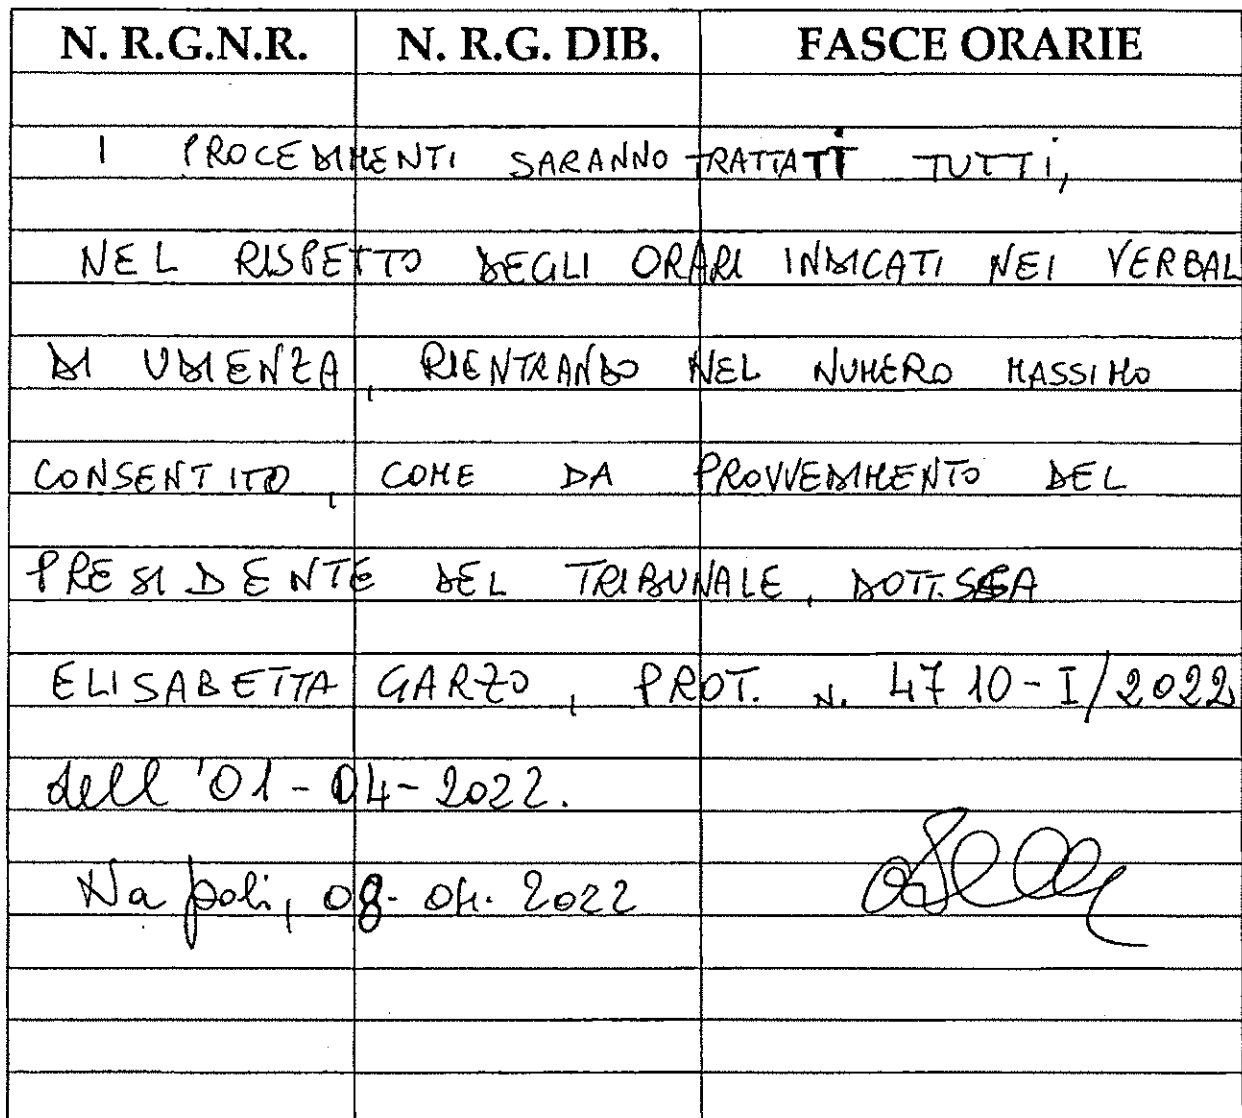 N. R.G.N.R. N. R.G. DIB. FASCE ORARIE
I PROCEDIMENTI SARANNO TRATTATI TUTTI,
NEL RISPETTO DEGLI ORARI INDICATI NEI VERBAL
DI UDIENZA, RIENTRANDO NEL NUMERO MASSIMO
CONSENTITO, COME DA PROVVEDIMENTO DEL
PRESIDENTE DEL TRIBUNALE, DOTT.SSA
ELISABETTA GARZO, PROT. N. 4710-I/2022
dell'01-04-2022.
Napoli, 08.04.2022